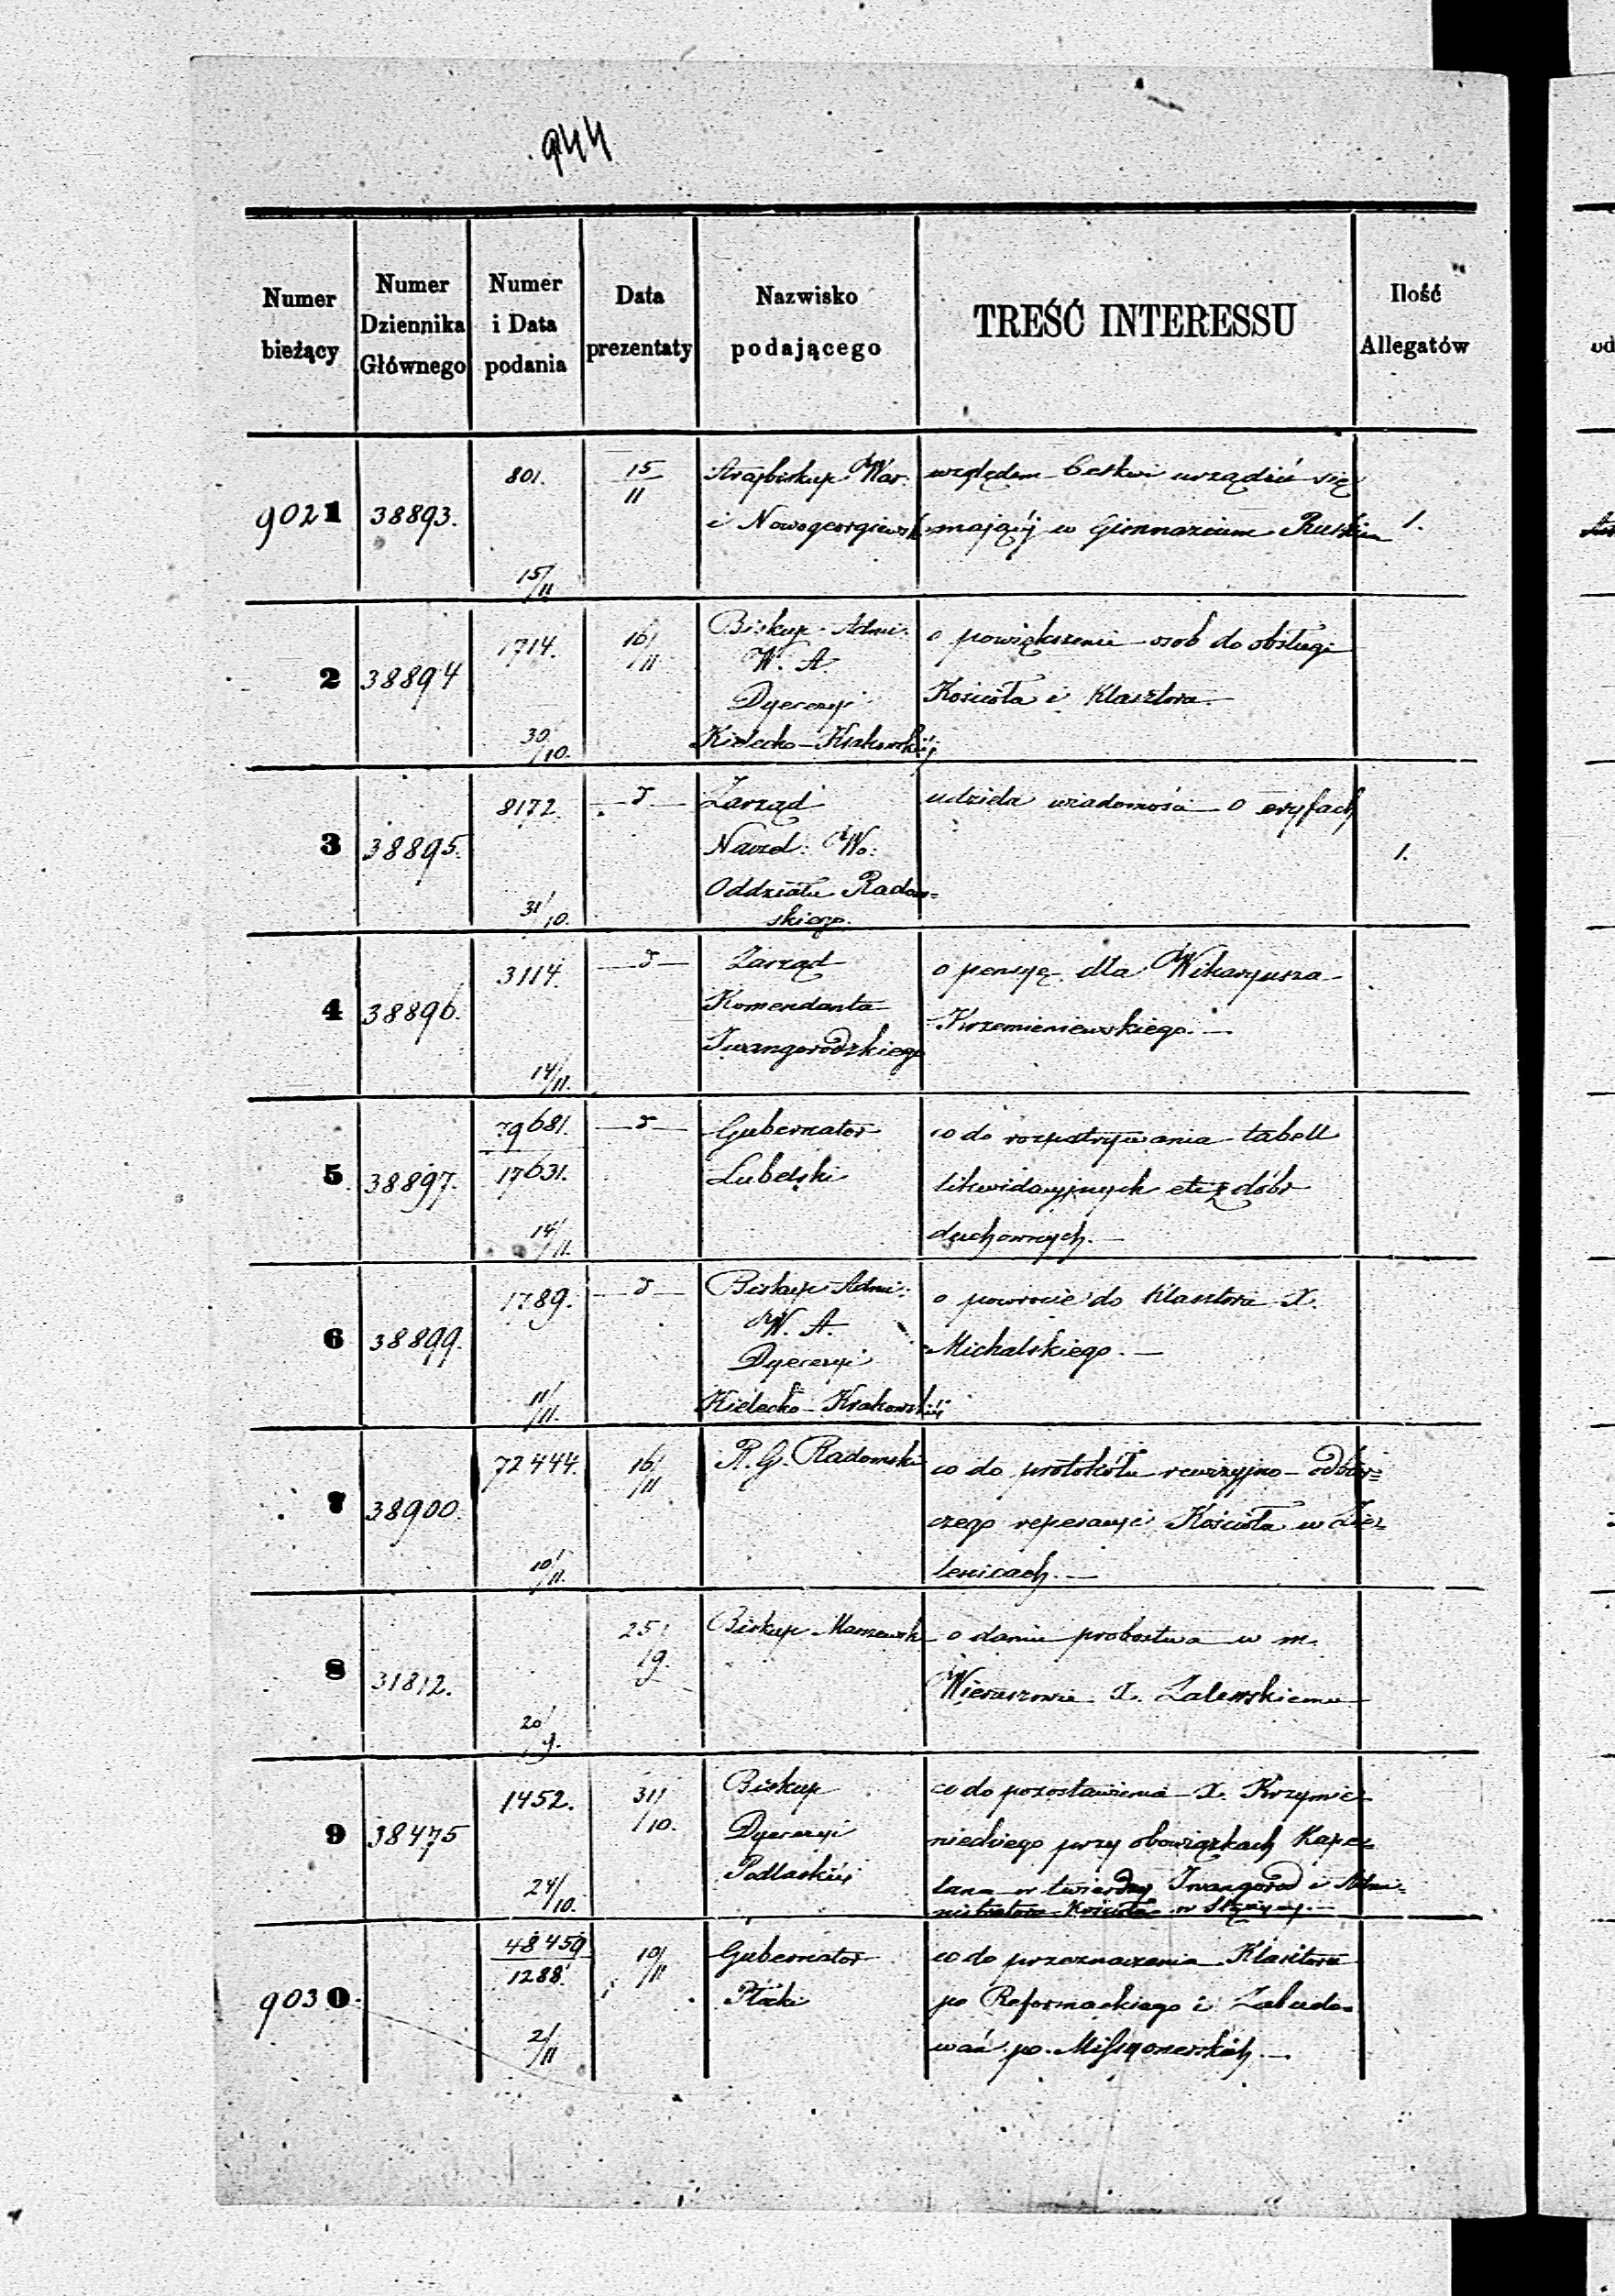 944
Numer bieżący
Numer Dziennika Głównego
Numer i Data podania
Data prezentaty
Nazwisko podającego
TREŚĆ INTERESSU
Ilość Allegatów
9021
38893.
801.
15/11
15/11
Arcybiskup War:
i Nowogeorgiewsk
względem Cerkwi urządzić się
mającéj w Gimnazium Ruskim
1.
2
38894
1714.
30/10.
16/11
Biskup Admi:
W. A.
Dyecezyi
Kielecko-Krakowskiéj
o powiększenie osob do obsługi
Kościoła i Klasztora.
3
38895.
8172.
31/10.
d
Zarząd
Oddziału Radom=
skiego.
udziela wiadomości o
1.
4
38896.
3114.
14/11.
d
Zarząd
Komendanta
Iwangorodzkiego
o pensyę dla Wikaryusza
Krzemieniewskiego.
5.
38897.
79681.
17631.
14/11.
d
Gubernator
Lubelski
co do rozpatrywania tabell
likwidacyjnych etc z dóbr
duchownych.
6
38899.
1789.
11/11.
d
Biskup Admi:
W. A.
Dyecezyi
Kielecko-Krakowskiéj
o powrocie do Klasztoru X.
Michalskiego.
7
38900.
72444.
10/11.
16/11
R. G. Radomski
co do protokółu rewizyjno-odbior=
czego reperacyi Kościoła w
lenicach.
8
31812.
20/9.
25/9.
Biskup
o daniu probostwa w m.
Wieruszowie X. Zalewskiemu
9
38475
1452.
24/10.
31/10.
Biskup
Dyecezyi
Podlaskiéj
co do pozostawienia X. Krzymie=
nieckiego przy obowiązkach Kape=
lana w twierdzy Iwangorod i Admi=
nistratora Kościoła w Stężycy.
9030.
48459
1288.
2/11
10/11
Gubernator
Płocki
co do przeznaczenia Klasztoru
po Reformackiego i Zabudo=
wań po Missyonerskich.